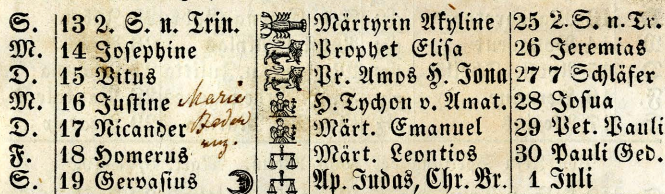 S. 13 2. S. n. Trin. Märtyrin Akyline 25 2. S. n. Tr.
M. 14 Josephine Prophet Elisa 26 Jeremias
D. 15 Vitus Pr. Amos H. Jona 27 7 Schläfer
M. 16 Justine Marie H. Tychon v. Amat. 28 Josua
D. 17 Nicander Märt. Emanuel 29 Pet. Pauli
F. 18 Homerus Märt. Leontios 30 Pauli Ged.
S. 19 Gervasius Ap. Judas, Chr. Br. 1 Juli